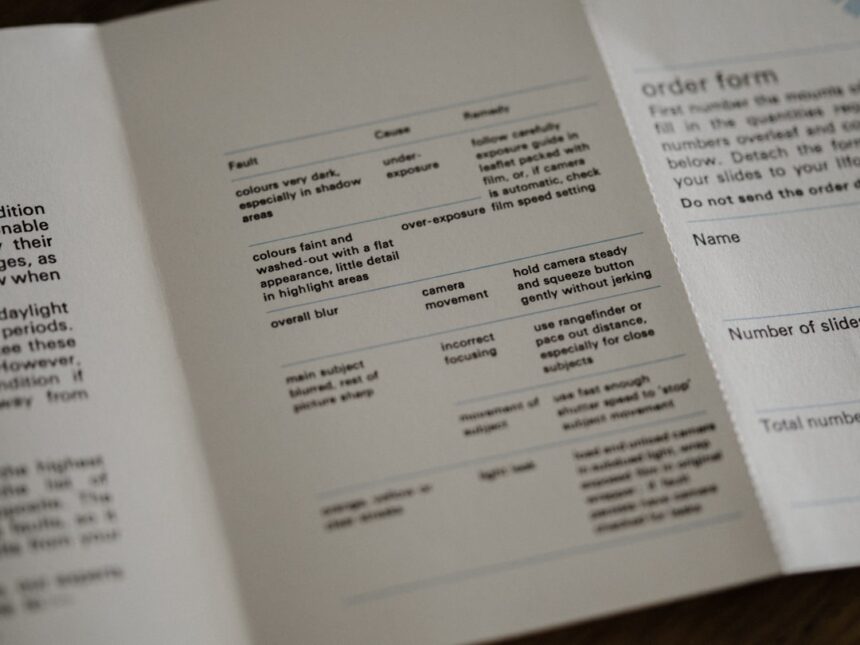 dition
nable
their
ges, as
when
daylight
periods.
ee these
However,
ndition if
way from
the highest
the list of
The
faults, as it
from your
Fault
Cause
Remedy
colours very dark,
especially in shadow
areas
under-
exposure
follow carefully
exposure guide in
leaflet packed with
film, or, if camera
is automatic, check
film speed setting
colours faint and
washed-out with a flat
appearance, little detail
in highlight areas
over-exposure
overall blur
camera
movement
hold camera steady
and squeeze button
gently without jerking
main subject
blurred, rest of
picture sharp
incorrect
focusing
use rangefinder or
pace out distance,
especially for close
subjects
movement of
subject
use fast enough
shutter speed to 'stop'
subject movement
orange, yellow or
light leak
load and unload camera
in subdued light, wrap
exposed film in original
fault
camera
order form
First number the mounts
fill in the quantities
numbers overleaf and
below. Detach the form
your slides to your
Do not send the order
Name
Number of slides
Total number